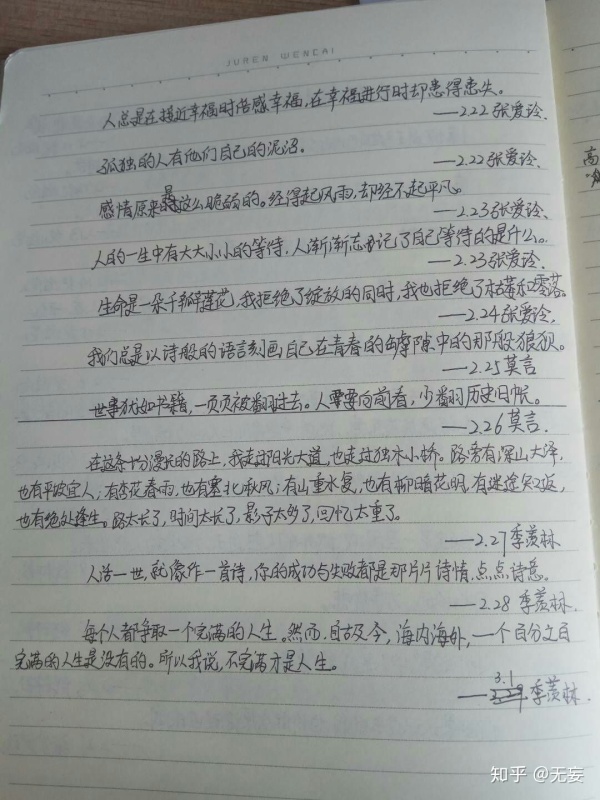 JUREN WENCAI
人总是在接近幸福时倍感幸福,在幸福进行时却患得患失。
——2.22张爱玲.
孤独的人有他们自己的泥沼.
——2.22张爱玲.
感情原来是这么脆弱的。经得起风雨,却经不起平凡。
——2.23张爱玲.
人的一生中有大大小小的等待,人渐渐忘记了自己等待的是什么。
——2.23张爱玲.
生命是一朵千瓣莲花,我拒绝了绽放的同时,我也拒绝了枯萎和零落。
——2.24张爱玲.
我们总是以诗般的语言刻画自己在青春的缝隙中的那般狼狈。
——2.25莫言
世事犹如书籍,一页页被翻过去。人需要向前看,少翻历史旧帐。
——2.26莫言.
在这条十分漫长的路上,我走过阳光大道,也走过独木小桥。路旁有深山大泽,
也有平坡宜人;有杏花春雨,也有塞北秋风;有山重水复,也有柳暗花明,有迷途知返,
也有绝处逢生。路太长了,时间太长了,影子太多了,回忆太重了。
——2.27季羡林
人活一世,就像作一首诗,你的成功与失败都是那片片诗情,点点诗意。
——2.28季羡林.
每个人都争取一个完满的人生。然而,自古及今,海内海外,一个百分之百
完满的人生是没有的。所以我说,不完满才是人生。
——3.1季羡林.
高
知乎 @无妄